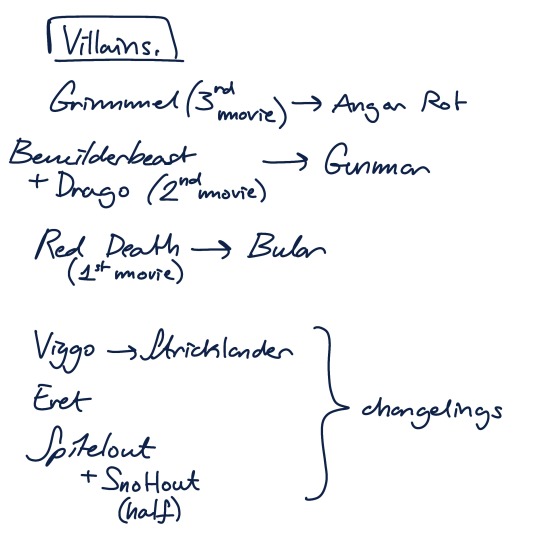 Villains.
Grimmmel (3rd movie) → Angar Rot
Bewilderbeast + Drago (2nd movie) → Gunmar
Red Death (1st movie) → Bular
Viggo → Stricklander
Eret
Spitelout + Snotlout (half)
changelings